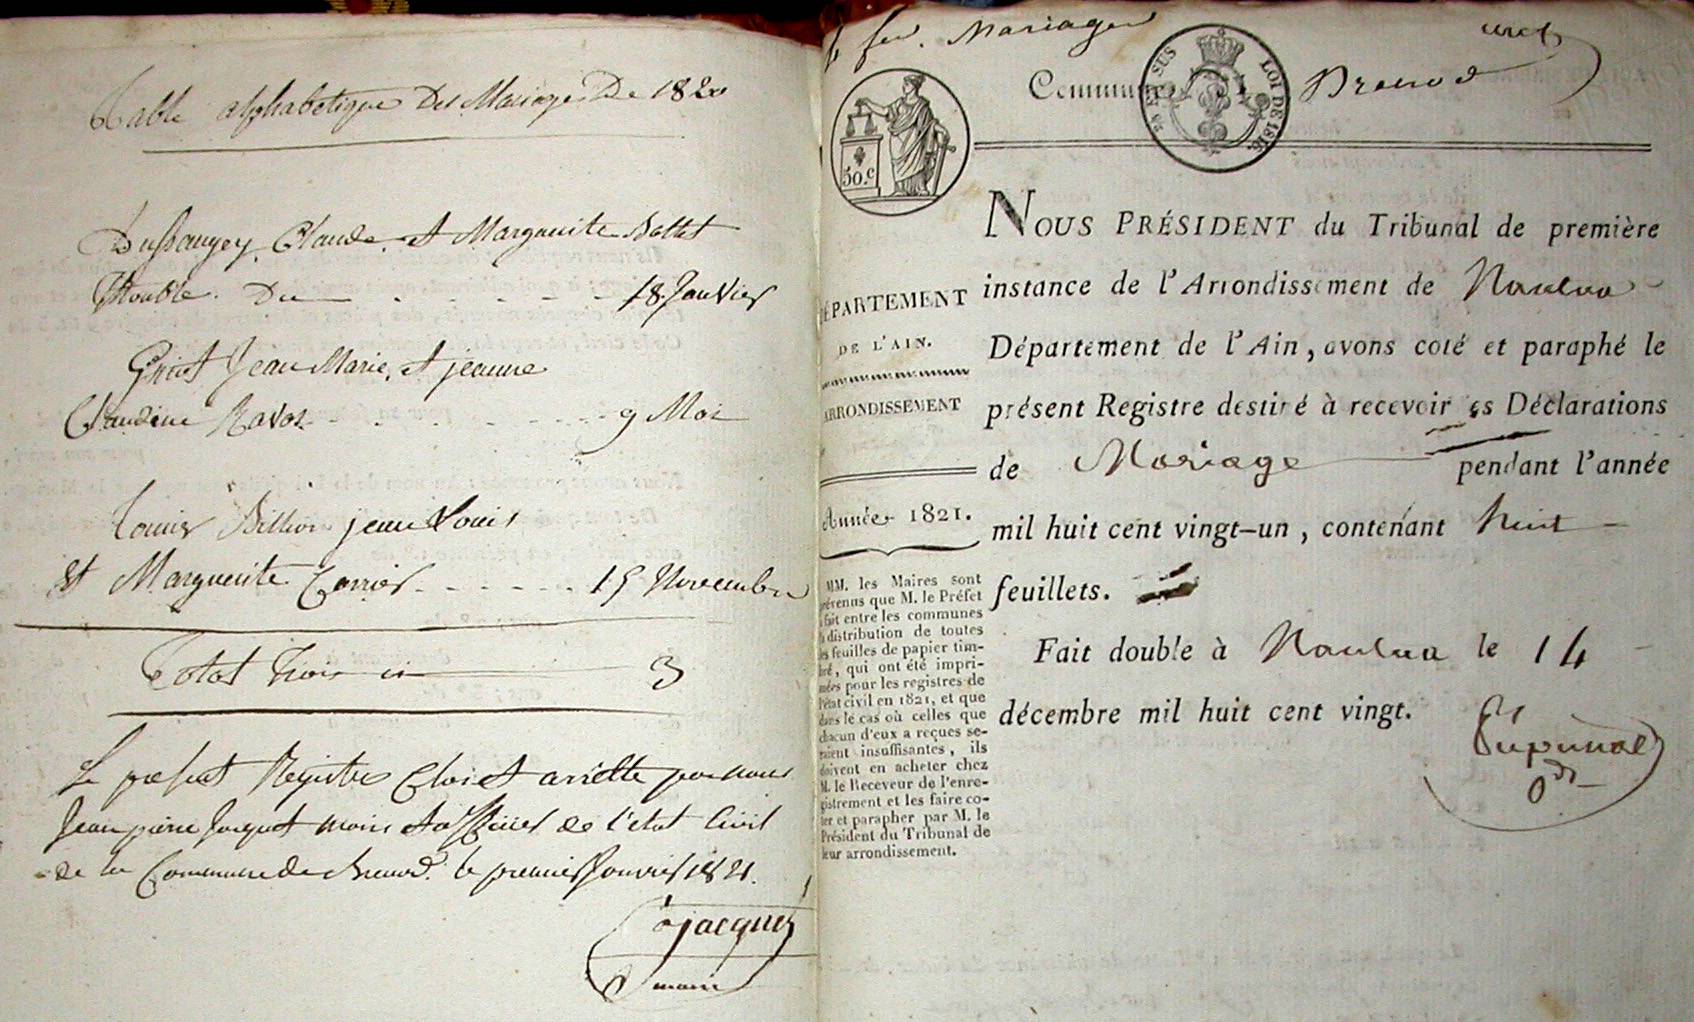 Table alphabetique Des Mariages De 1820
Dussaugey, Claude, et Marguerite Ballet
Double. Du - - - - - 18 Janvier
Jean Marie, et jeanne
Claudine Ravot - - - - - 9 Mai
Louis Billion jean Louis
Et Marguerite Carrier - - - - - 15 Novembre
Total trois ci 3
Le present Registre Clos et arretté par nous
Jean pierre Jacquet maire et officier de l'etat Civil
de la Commune de Brenod. le premier Janvier 1821.
jacquet
maire
feu. Mariages
Commune Brenod
SUS
LOI DE 1816.
50.c
NOUS PRÉSIDENT du Tribunal de première
instance de l'Arrondissement de Nantua
Département de l'Ain, avons coté et paraphé le
présent Registre destiné à recevoir les Déclarations
de Mariage pendant l'année
mil huit cent vingt-un, contenant huit
feuillets.
Fait double à Nantua le 14
décembre mil huit cent vingt.
DÉPARTEMENT
DE L'AIN.
ARRONDISSEMENT
Année 1821.
MM. les Maires sont
prévenus que M. le Préfet
a fait entre les communes
la distribution de toutes
les feuilles de papier tim-
bré, qui ont été impri-
mées pour les registres de
l'état civil en 1821, et que
dans le cas où celles que
chacun d'eux a reçues se-
raient insuffisantes, ils
doivent en acheter chez
M. le Receveur de l'enre-
gistrement et les faire co-
ter et parapher par M. le
Président du Tribunal de
leur arrondissement.